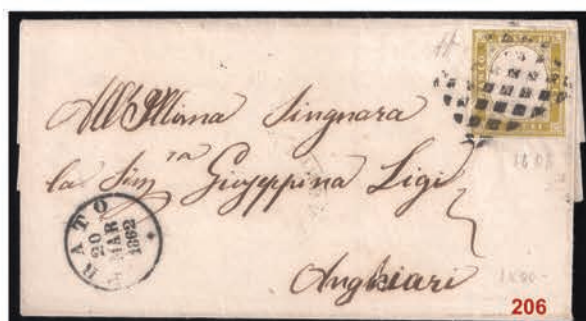 All'Illma Singnara
la Sigra Giuseppina Ligi
Anghiari
PRATO
20
MAR
1862
206